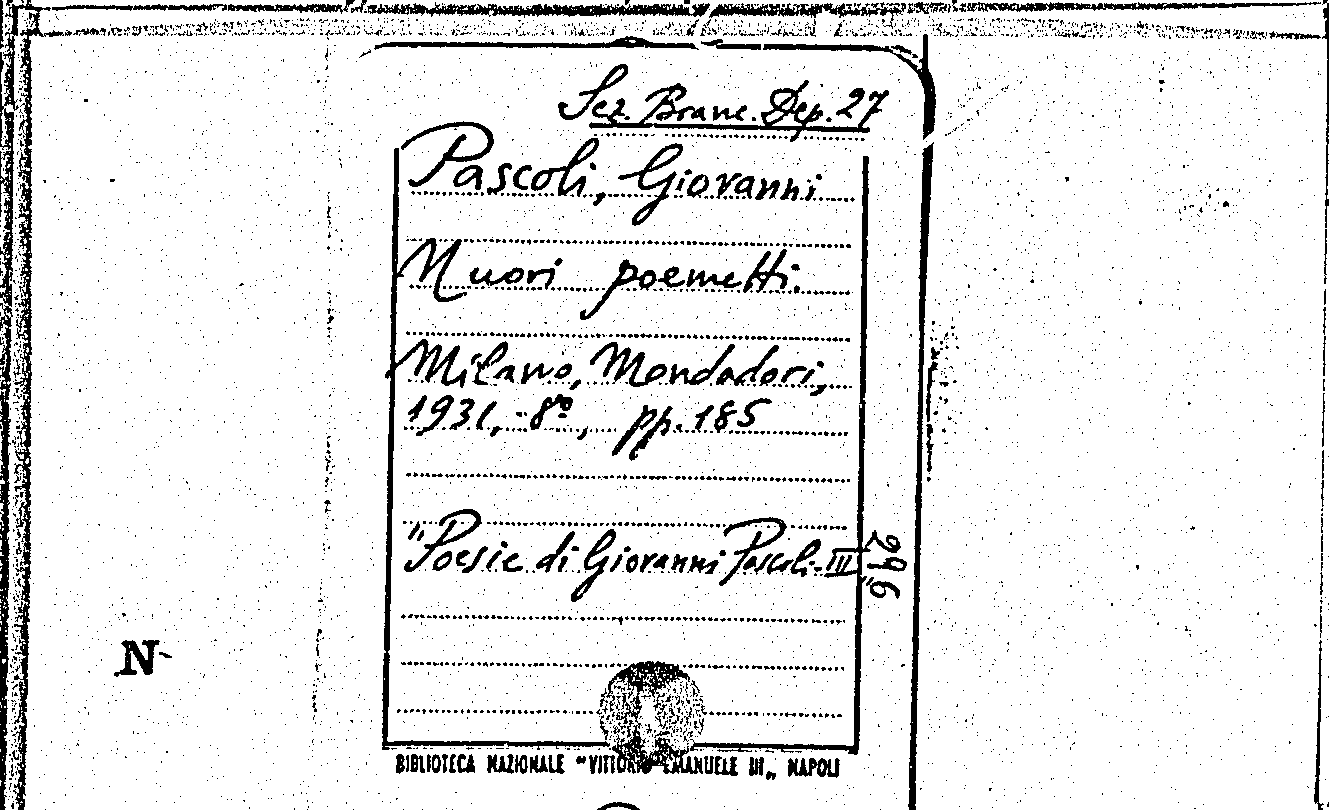 Sez. Branc. Dep. 27
Pascoli, Giovanni
Nuovi poemetti.
Milano, Mondadori,
1931, 8º, pp. 185
"Poesie di Giovanni Pascoli-III"
296
N
BIBLIOTECA NAZIONALE "VITTORIO EMANUELE III„ NAPOLI